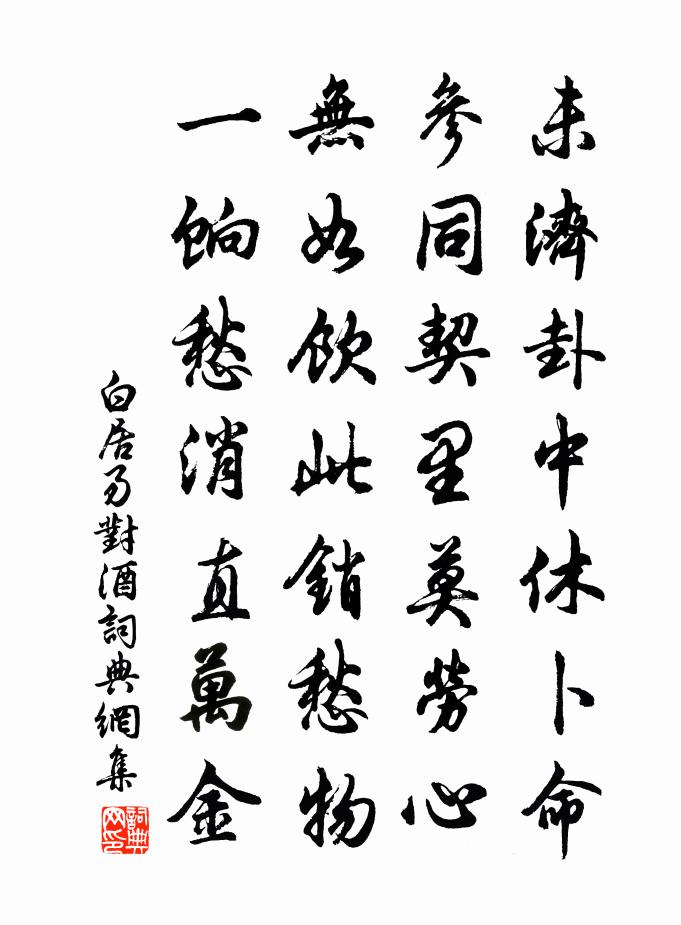 未濟卦中休卜命
參同契里莫勞心
無如飲此銷愁物
一餉愁消直萬金
白居易對酒詞典網集
詞典
网印